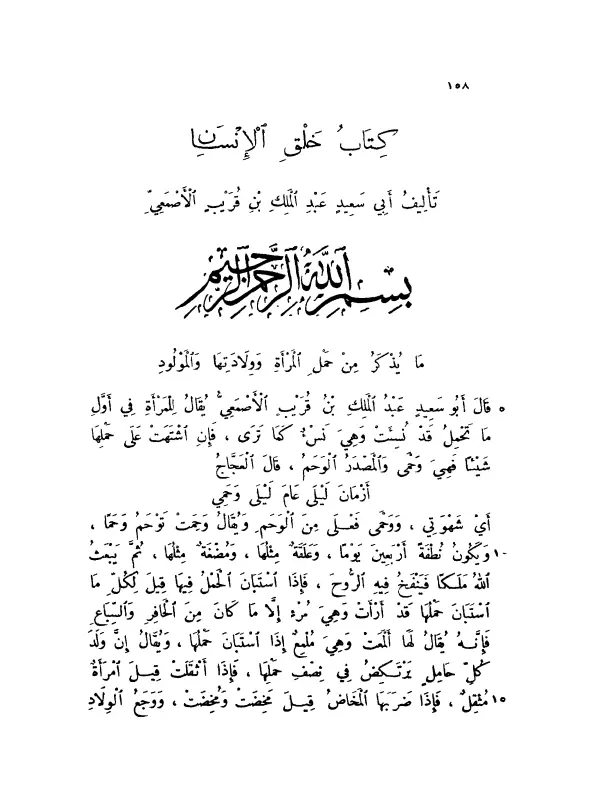 ١٥٨
كِتَابُ خَلْقِ ٱلْإِنْسَانِ
تَأْلِيفُ أَبِي سَعِيدٍ عَبْدِ ٱلْمَلِكِ بْنِ قُرَيْبٍ ٱلْأَصْمَعِيِّ
بِسْمِ ٱللّٰهِ ٱلرَّحْمٰنِ ٱلرَّحِيمِ
مَا يُذْكَرُ مِنْ حَمْلِ ٱلْمَرْأَةِ وَوِلَادَتِهَا وَٱلْمَوْلُودِ
٥ قَالَ أَبُو سَعِيدٍ عَبْدُ ٱلْمَلِكِ بْنُ قُرَيْبٍ ٱلْأَصْمَعِيُّ يُقَالُ لِلْمَرْأَةِ فِي أَوَّلِ
مَا تَحْمِلُ قَدْ نُسِئَتْ وَهِيَ نَسْءٌ كَمَا تَرَى ، فَإِنِ ٱشْتَهَتْ عَلَى حَمْلِهَا
شَيْئًا فَهِيَ وَحْمَى وَٱلْمَصْدَرُ ٱلْوَحَمُ ، قَالَ ٱلْعَجَّاجُ
أَزْمَانَ لَيْلَى عَامَ لَيْلَى وَحَمِي
أَيْ شَهْوَتِي ، وَوَحْمَى فَعْلَى مِنَ ٱلْوَحَمِ وَيُقَالُ وَحِمَتْ تَوْحَمُ وَحَمًا ،
١٠ وَيَكُونُ نُطْفَةً أَرْبَعِينَ يَوْمًا ، وَعَلَقَةً مِثْلَهَا ، وَمُضْغَةً مِثْلَهَا ، ثُمَّ يَبْعَثُ
ٱللّٰهُ مَلَكًا فَيَنْفَخُ فِيهِ ٱلرُّوحَ ، فَإِذَا ٱسْتَبَانَ ٱلْحَمْلُ فِيهَا قِيلَ لِكُلِّ مَا
ٱسْتَبَانَ حَمْلُهَا قَدْ أَرْأَتْ وَهِيَ مُرْءٍ إِلَّا مَا كَانَ مِنَ ٱلْحَافِرِ وَٱلسِّبَاعِ
فَإِنَّهُ يُقَالُ لَهَا أَلْمَعَتْ وَهِيَ مُلْمِعٌ إِذَا ٱسْتَبَانَ حَمْلُهَا ، وَيُقَالُ إِنَّ وَلَدَ
كُلِّ حَامِلٍ يَرْتَكِضُ فِي نِصْفِ حَمْلِهَا ، فَإِذَا أَثْقَلَتْ قِيلَ ٱمْرَأَةٌ
١٥ مُثْقِلٌ ، فَإِذَا ضَرَبَهَا ٱلْمَخَاضُ قِيلَ مَخِضَتْ وَمُخِضَتْ ، وَوَجَعُ ٱلْوِلَادِ